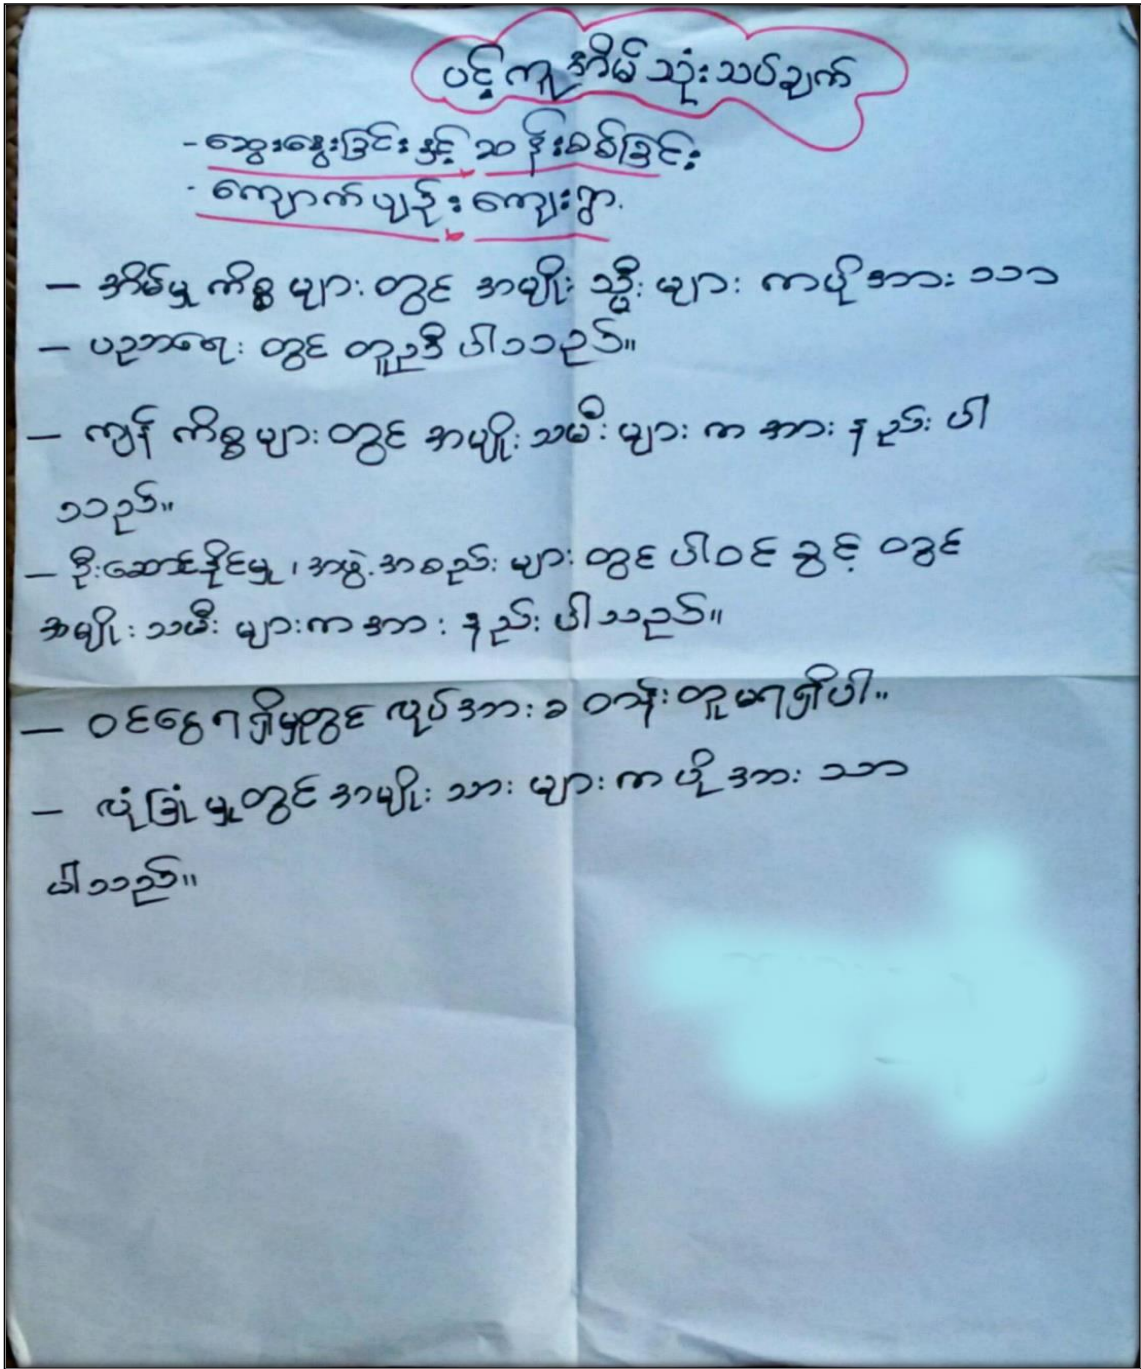 ပင့်ကူအိမ်သုံးသပ်ချက်
- ဆွေးနွေးခြင်းနှင့် ဆန်းစစ်ခြင်း
- ကျောက်ပျဉ်းကျေးရွာ.
— အိမ်မှုကိစ္စများတွင် အမျိုးသ္မီးများ ကပိုအားသာ
— ပညာရေးတွင် တူညီပါသည်။
— ကျန်ကိစ္စများတွင် အမျိုးသမီးများက အားနည်းပါ
သည်။
— ဦးဆောင်နိုင်မှု၊ အဖွဲ့အစည်းများတွင် ပါဝင်ခွင့်
အမျိုးသမီးများက အားနည်းပါသည်။
— ဝင်ငွေရရှိမှုတွင် လုပ်အားခ ဝတန်းတူမရရှိပါ။
— လုံခြုံမှုတွင် အမျိုးသားများက ပိုအားသာ
ပါသည်။